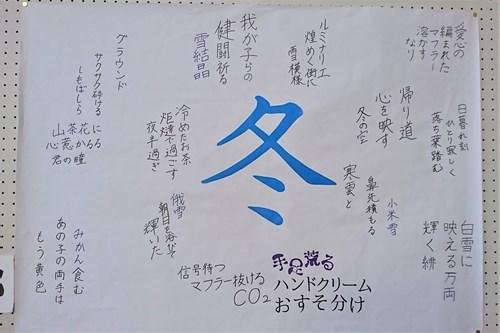 愛心の
編まれた
マフラー
溶かす
なり
ルミナリエ
煌めく街に
雪模様
我が子らの
健闘祈る
雪結晶
グラウンド
サクサク砕ける
しもばしら
山茶花に
心惹かるる
君の瞳
冬
帰り道
心を映す
冬の空
日暮れ刻
ひとり寂しく
落ち葉踏む
冷めたお茶
炬燵で過ごす
夜半過ぎ
俄雪
朝日を浴びて
輝いた
寒雲と
鼻先積もる
小米雪
白雪に
映える万両
輝く緋
みかん食む
あの子の両手は
もう黄色
信号待つ
マフラー抜ける
CO2
手足荒る
ハンドクリーム
おすそ分け